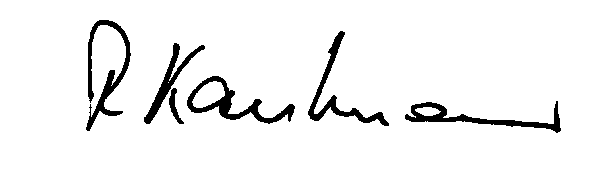 R Kaufmann